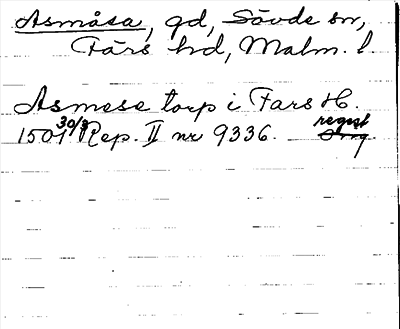 Asmåsa, gd, Sövde sn,
Färs hd, Malm. l.
Asmese torp i Fars H.
1501 30/3 Rep. II nr 9336. regest